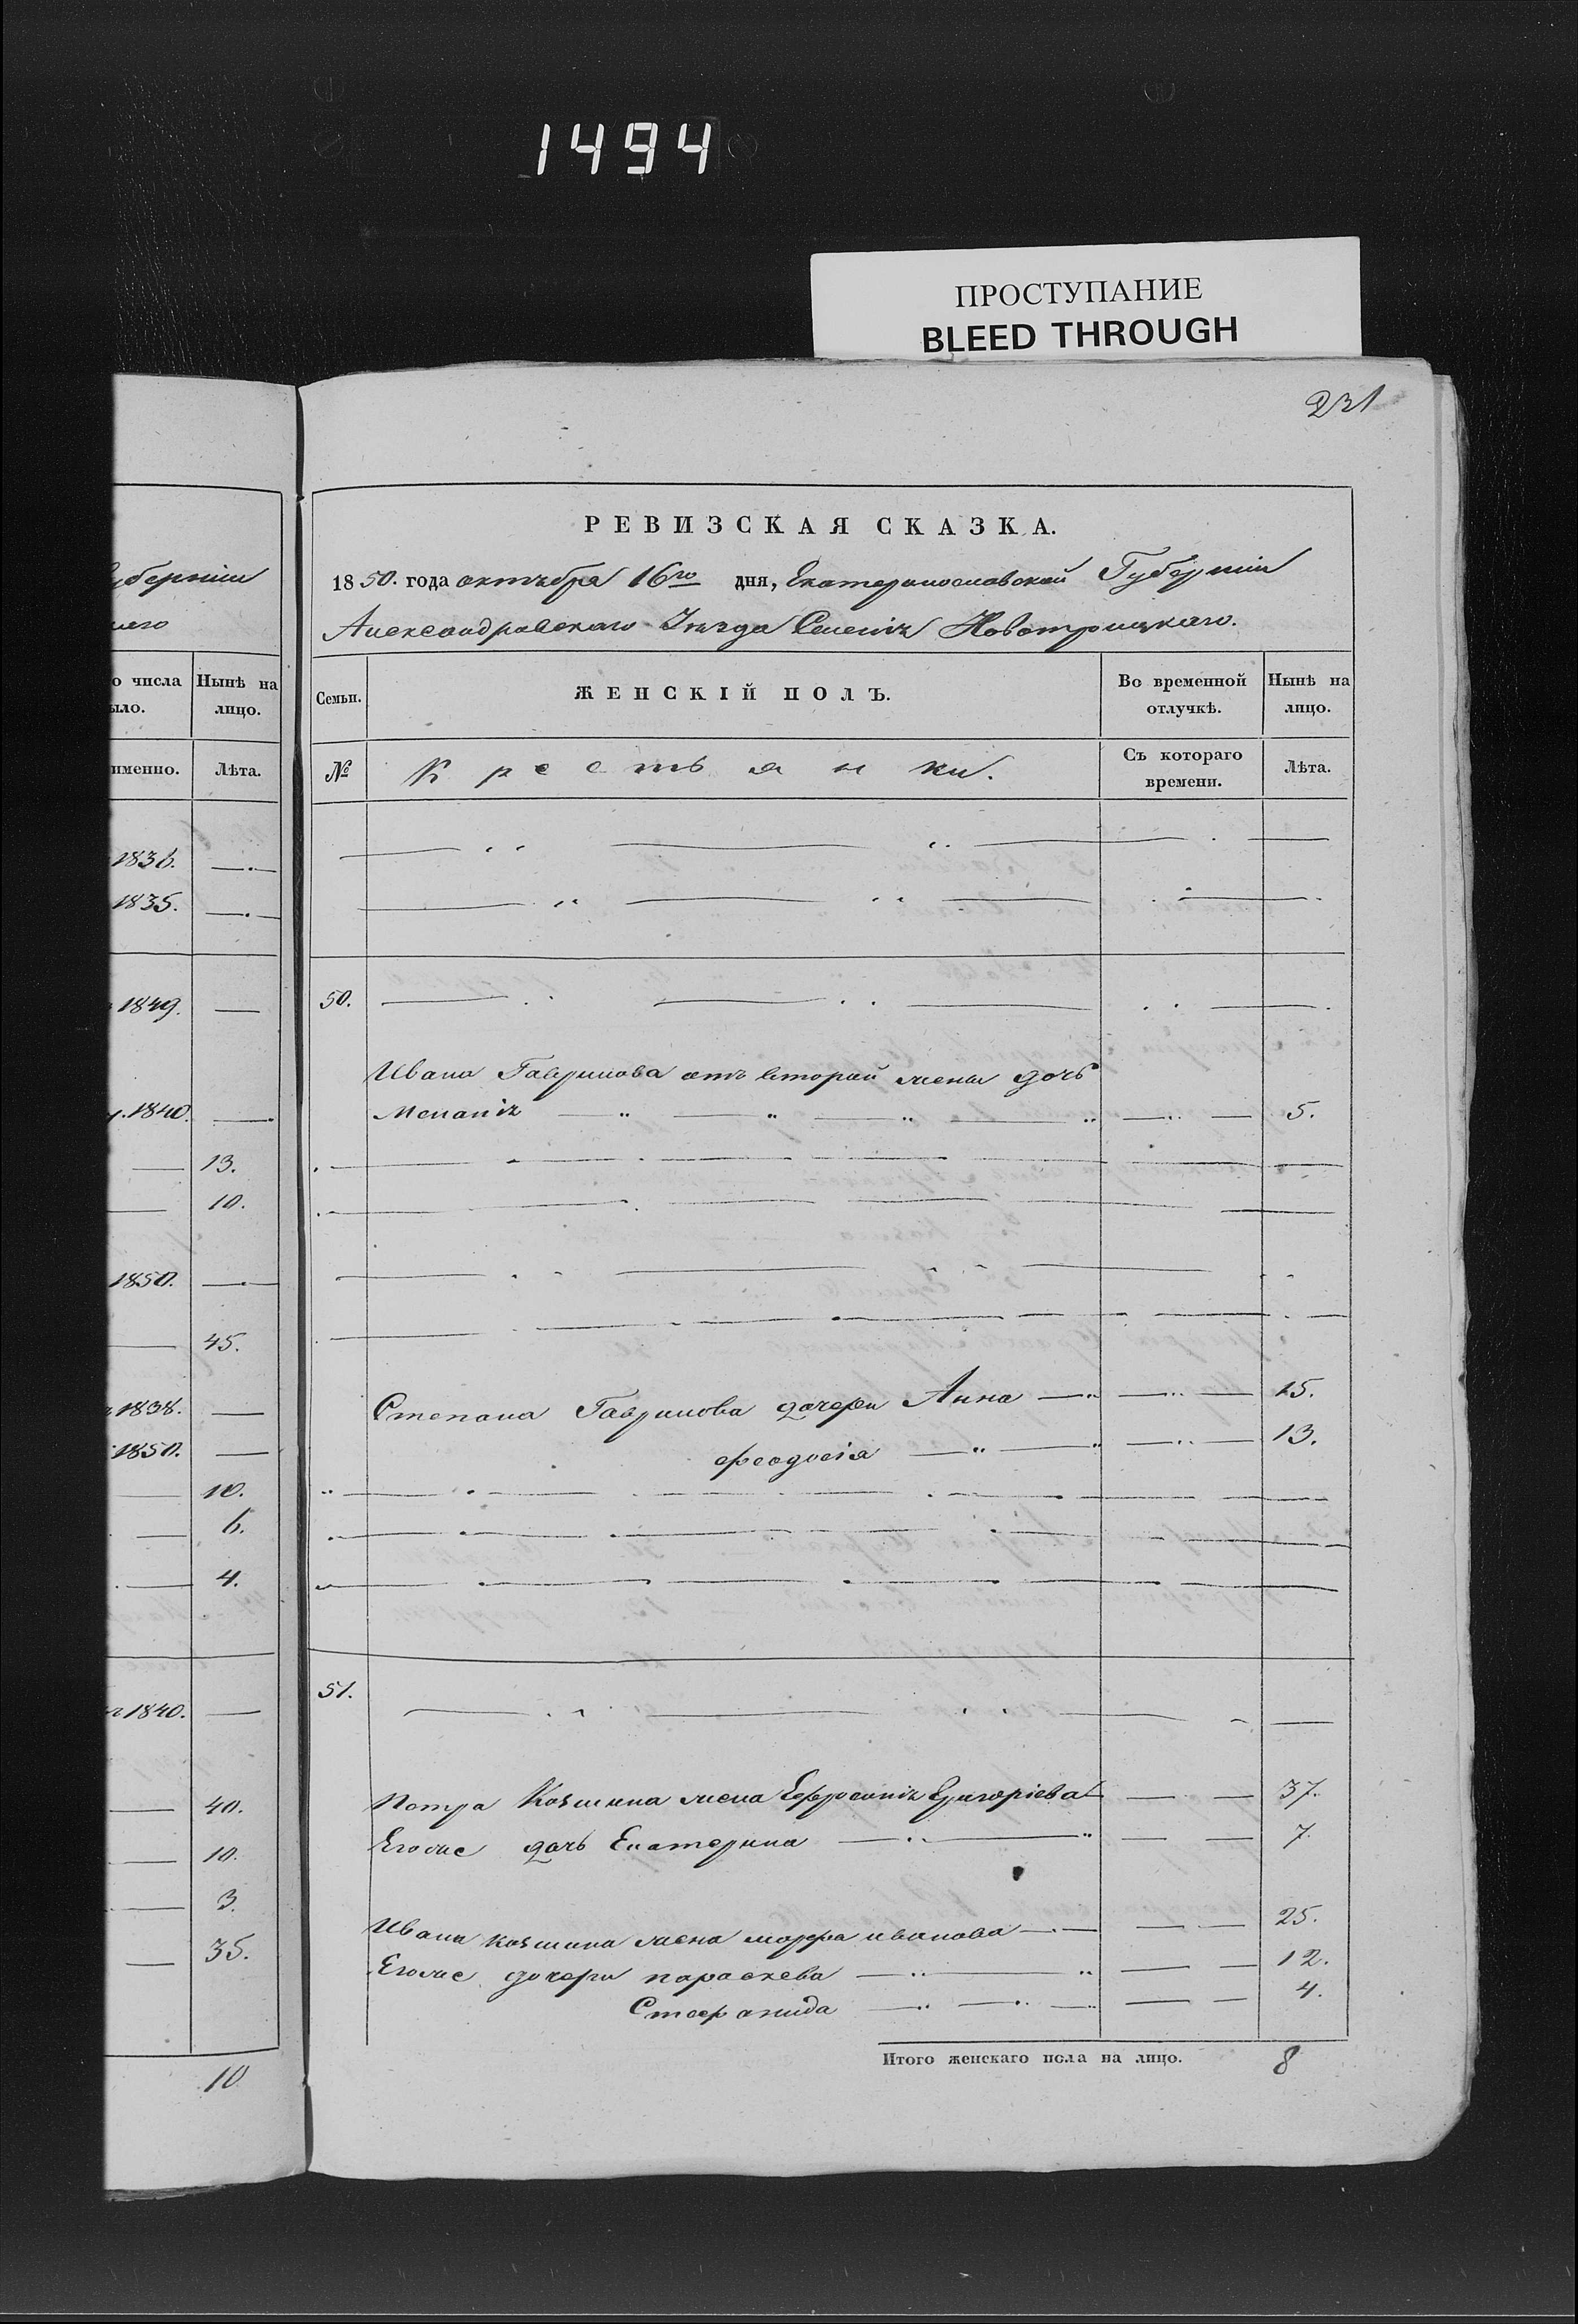 1494
ПРОСТУПАНИЕ
BLEED THROUGH
231
губерніи
о числа
ыло.
Нынѣ на
лицо.
именно.
Лѣта.
1836.
1835.
1849.
1840.
13.
10.
1850.
45.
1838.
1850.
10.
6.
4.
1840.
40.
10.
3.
35.
10
РЕВИЗСКАЯ СКАЗКА.
1850. года октября 16го дня, Екатеринославской Губерніи
Александровскаго Уѣзда Селенія Новотроицкаго.
Семьи.
ЖЕНСКІЙ ПОЛЪ.
Во временной
отлучкѣ.
Нынѣ на
лицо.
№
Крестьянки.
Съ котораго
времени.
Лѣта.
50.
Ивана Гаврилова отъ второй жены дочь
Меланія 5.
Степана Гаврилова дочери Анна 15.
Феодосія 13.
51.
Петра Козмина жена Ефросинія Григоріева 37.
Егоже дочь Екатерина 7.
Ивана Козмина жена Марфа Иванова 25.
Егоже дочери Параскева 12.
Стефанида 4.
Итого женскаго пола на лицо. 8